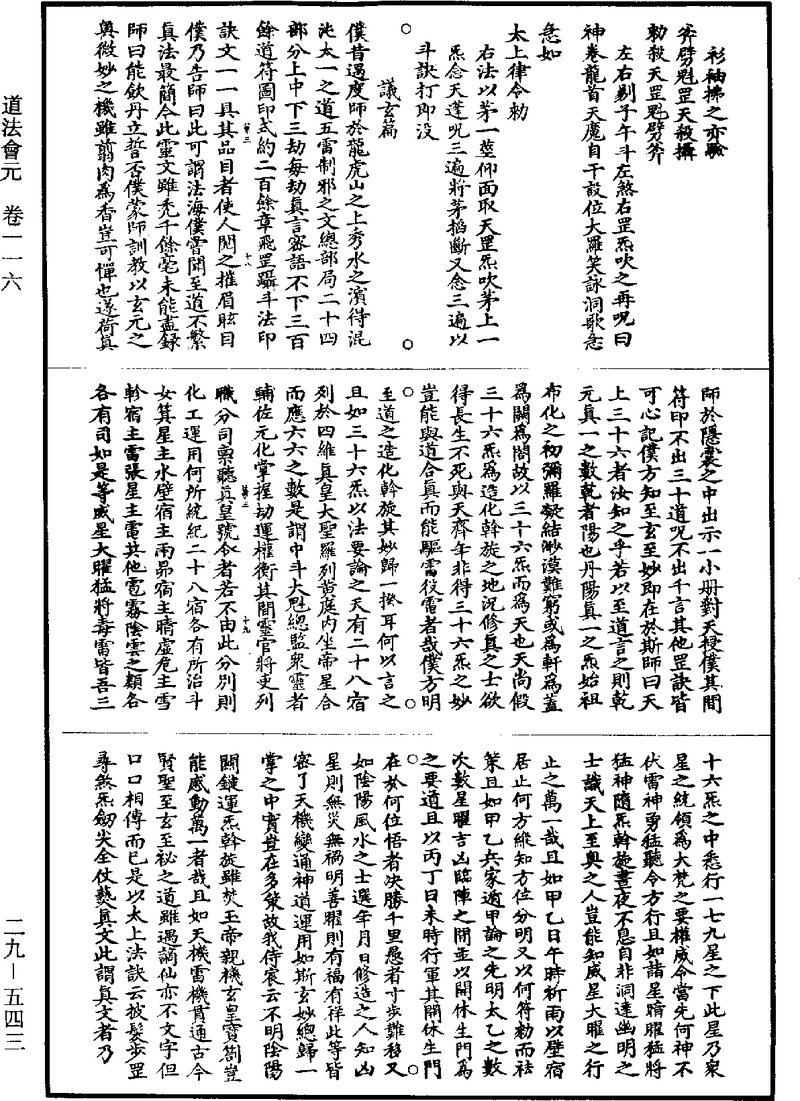 道法會元　卷一一六
二九—五四三
衫袖拂之亦驗
斧劈魁罡天殺攝
勑殺天罡鬼劈斧
左右剔子午斗左煞右罡炁吹之再呪曰
神卷龍首天魔自干設位大羅笑詠洞歌急
急如
太上律令勑
右法以茅一莖仰面取天罡炁吹茅上一
炁念天蓬呪三遍將茅搯斷又念三遍以
斗訣打即没
議玄篇
僕昔遇度師於龍虎山之上秀水之濱得混
沌太一之道五雷制邪之文總部局二十四
部分上中下三劫每劫真言密語不下三百
餘道符圖印式約二百餘章飛罡躡斗法印
訣文一一具其品目者使人閱之摧眉眩目
僕乃告師曰此可謂法海僕嘗聞至道不繁
真法最簡今此靈文雖禿千餘毫未能盡錄
師曰能飲丹立誓否僕蒙師訓教以玄元之
奧微妙之機雖剪肉為香豈可憚也遂荷真
師於隱囊之中出示一小冊對天授僕其間
符印不出三十道呪不出千言其他罡訣皆
可心記僕方知至玄至妙即在於斯師曰天
上三十六者汝知之乎若以至道言之則乾
元真一之數乾者陽也丹陽真一之炁始祖
布化之初彌羅凝結渺漠難窮或為軒為蓋
為闢為闔故以三十六炁而為天也天尚假
三十六炁為造化斡旋之地況修真之士欲
得長生不死與天齊年非得三十六炁之妙
豈能與道合真而能驅雷役電者哉僕方明
至道之造化斡旋其妙歸一揆耳何以言之
且如三十六炁以法要論之天有二十八宿
列於四維真皇大聖羅列黃庭內坐帝星合
而應六六之數是謂中斗大魁總監衆靈者
輔佐元化掌握劫運權衡其間靈官將吏列
職分司稟聽真皇號令者若不由此分別則
化工運用何所統紀二十八宿各有所治斗
女箕星主水壁宿主雨昴宿主晴虛危主雪
軫宿主雷張星主電其他雹霧陰雲之類各
各有司如是等威星大曜猛將毒雷皆吾三
十六炁之中悉行一七九星之下此星乃衆
星之統領為大梵之要權威令當先何神不
伏雷神勇猛聽令方行且如諸星暗曜猛將
猛神隨炁斡旋晝夜不息自非洞達幽明之
士識天上至奧之人豈能知威星大曜之行
止之萬一哉且如甲乙日午時祈雨以壁宿
居止何方維知方位分明又以何符勑而祛
策且如甲乙兵家遁甲論之先明太乙之數
次數星曜吉凶臨陣之間並以開休生門為
之要道且以丙丁日未時行軍其開休生門
在於何位悟者決勝千里愚者寸步難移又
如陰陽風水之士選年月日修造之人知凶
星則無災無禍明善曜則有福有祥此等皆
密了天機變通神道運用如斯玄妙總歸一
掌之中實豈在多策故我侍宸云不明陰陽
關鍵運炁斡旋雖焚玉帝親機玄皇寶劄豈
能感動萬一者哉且如天機雷機貫通古今
賢聖至玄至祕之道雖遇謫仙亦不文字但
口口相傳而已是以太上法訣云披髮步罡
尋煞炁劒尖全仗藝真文此謂真文者乃